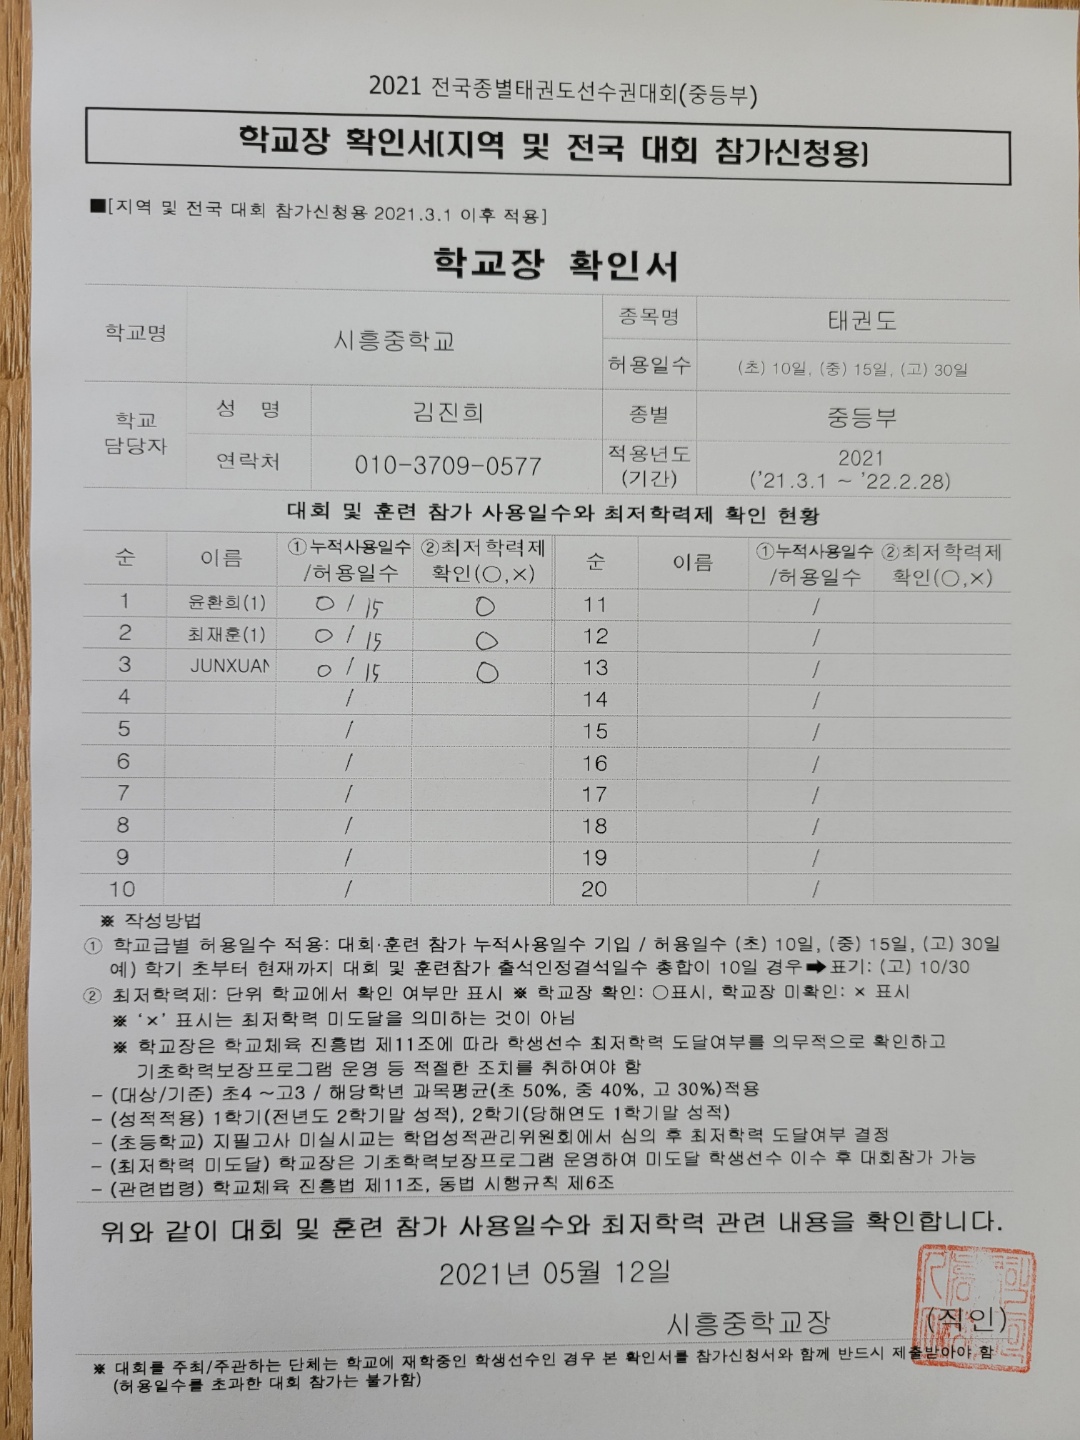 2021 전국종별태권도선수권대회(중등부)
학교장 확인서(지역 및 전국 대회 참가신청용)
■[지역 및 전국 대회 참가신청용 2021.3.1 이후 적용]
학교장 확인서
학교명 시흥중학교 종목명 태권도
허용일수 (초) 10일, (중) 15일, (고) 30일
학교 담당자 성 명 김진희 종별 중등부
연락처 010-3709-0577 적용년도 (기간) 2021 ('21.3.1 ~ '22.2.28)
대회 및 훈련 참가 사용일수와 최저학력제 확인 현황
순 이름 ①누적사용일수/허용일수 ②최저학력제 확인(○,×) 순 이름 ①누적사용일수/허용일수 ②최저학력제 확인(○,×)
1 윤환희(1) 0 / 15 ○ 11 /
2 최재훈(1) 0 / 15 ○ 12 /
3 JUNXUAN 0 / 15 ○ 13 /
4 / 14 /
5 / 15 /
6 / 16 /
7 / 17 /
8 / 18 /
9 / 19 /
10 / 20 /
※ 작성방법
① 학교급별 허용일수 적용: 대회·훈련 참가 누적사용일수 기입 / 허용일수 (초) 10일, (중) 15일, (고) 30일
예) 학기 초부터 현재까지 대회 및 훈련참가 출석인정결석일수 총합이 10일 경우➡표기: (고) 10/30
② 최저학력제: 단위 학교에서 확인 여부만 표시 ※ 학교장 확인: ○표시, 학교장 미확인: × 표시
※ '×' 표시는 최저학력 미도달을 의미하는 것이 아님
※ 학교장은 학교체육 진흥법 제11조에 따라 학생선수 최저학력 도달여부를 의무적으로 확인하고
기초학력보장프로그램 운영 등 적절한 조치를 취하여야 함
- (대상/기준) 초4 ~고3 / 해당학년 과목평균(초 50%, 중 40%, 고 30%)적용
- (성적적용) 1학기(전년도 2학기말 성적), 2학기(당해연도 1학기말 성적)
- (초등학교) 지필고사 미실시교는 학업성적관리위원회에서 심의 후 최저학력 도달여부 결정
- (최저학력 미도달) 학교장은 기초학력보장프로그램 운영하여 미도달 학생선수 이수 후 대회참가 가능
- (관련법령) 학교체육 진흥법 제11조, 동법 시행규칙 제6조
위와 같이 대회 및 훈련 참가 사용일수와 최저학력 관련 내용을 확인합니다.
2021년 05월 12일
시흥중학교장 (직인)
※ 대회를 주최/주관하는 단체는 학교에 재학중인 학생선수인 경우 본 확인서를 참가신청서와 함께 반드시 제출받아야 함
(허용일수를 초과한 대회 참가는 불가함)